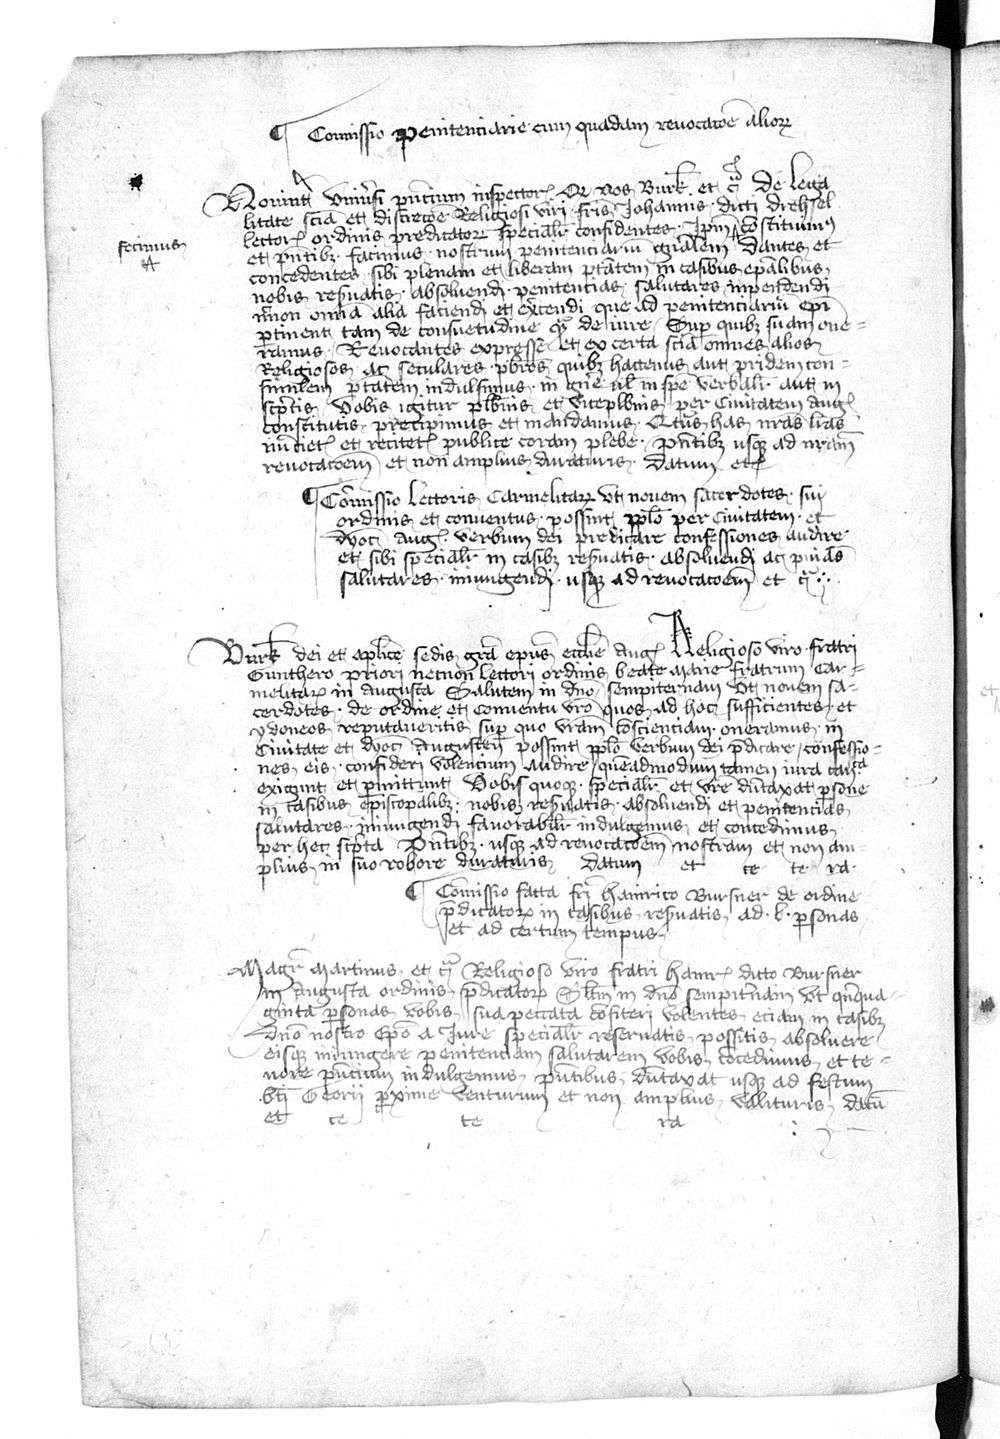 ¶ Com̄issio penitenciarie cum quadam reuocacōe alior̄
Nouerint vniu̓si pn̄cium inspector̄ Qr nos Burk̄ et c̄ de lega
litate scīa et discrecōe Religiosi viri fr̄is Johannis dicti drehsel
lector̄ ordinis predicator̄ specialr̄ confidentes Ip̄m constituim⁹
fecimus
et pn̄tib⁊ facimus nostrum penitenciariū gn̄alem dantes et
concedentes sibi plenam et liberam ptātem in casibus ep̄alibus
nobis res̓uatis absoluendi penitencias salutares inpendendi
n̄non om̄ia alia faciendi et ex̓cendi que ad penitenciariū ep̄i
ptinent tam de consuetudine qͣ de iure Sup quib⁊ suam one-
ramus Reuocantes expresse et ex certa scīa omnes alios
Religiosos ac seculares pb̄ros quib⁊ hactenus aut pridem con-
simīlem ptātem indulsimus in gn̄e ul̄ in spē verbalr̄ aut in
scptis Vobis igitur pleb̄nis et viceplb̄nis per Ciuitatem Auḡ
constitutis precipimus et mandamus Qtus has nr̄as lr̄as
nūcietͬ et recitetͬ publice coram plebe pn̄tib⁊ usq⁊ ad nr̄am
reuocacōem et non amplius duraturis Datum etc̄
¶ Com̄issio lectoris Carmelitar̄ vt nouem sacerdotes sui
ordinis et conuentus possint pp̄lo per Ciuitatem et
dyoc̄ Auḡ verbum dei predicare confessiones audire
et sibi specialr̄ in casib⁊ res̓uatis absoluendi ac pn̄ias
salutares iniungendi usq⁊ ad reuocacōem et c̄
Burk̄ dei et ap̄lice sedis gr̄a ep̄us eccl̄ie Auḡ Religioso viro fratri
Gunthero priori necnon lectori ordinis beate Marie fratrum Car-
melitar̄ in Augusta Salutem in dn̄o sempiternam Vt nouem sa-
cerdotes de ordine et Conuentu vr̄o quos ad hoc sufficientes et
ydoneos reputaueritis sup quo vr̄am cōscienciam oneramus in
Ciuitate et dyoc̄ Augusten̄ possint pp̄lo verbum dei p̄dicare confessio-
nes eis confiteri volencium audire quēadmodum tamen iura can⁹ca
exigunt et pmittunt Vobis quoq⁊ specialr̄ et vr̄e dūtaxat psone
in casibus episcopalib⁊ nobis res̓uatis absoluendi et penitencias
salutares iniungendi fauorabilr̄ indulgemus et concedimus
per hec scpta Pn̄tib⁊ usq⁊ ad reuocacōem nostram et non am-
plius in suo robore duraturis Datum et ce te ra
¶ Com̄issio facta fr̄i Hainrico Bursner de ordine
p̄dicator̄ in casibus res̓uatis ad .l. psonas
et ad certum tempus
Magr̄ Martinus et c̄ Religioso viro fratri Hainr̄ dicto Bursner
in Augusta ordinis p̄dicator̄ Sltm̄ in dn̄o sempit̓nam Vt qn̄qua-
ginta psonas vobis sua peccata cōfiteri volentes eciam in casib⁊
dn̄o nostro Ep̄o a Iure specialr̄ reseruatis possitis absoluere
eisq⁊ iniungere penitenciam salutarem vobis cōcedimus et te-
nore pn̄cium indulgemus pn̄tibus dūtaxat usq⁊ ad festum
bt̄i Georii pxime venturum et non amplius valituris datū
et ce te ra